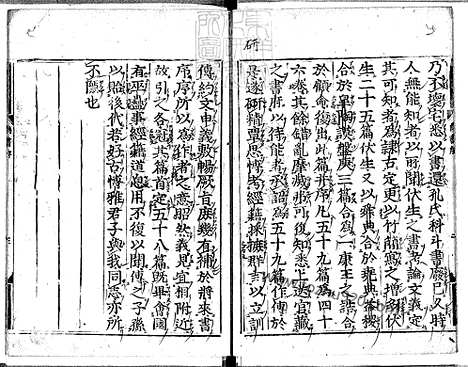 研
乃不壞宅悉以書還孔氏科斗書廢已久時
人無能知者以所聞伏生之書考論文義定
其可知者為隸古定更以竹簡寫之增多伏
生二十五篇伏生又以舜典合於堯典益稷
合於皋陶謨盤庚三篇合為一康王之誥合
於顧命復出此篇并序凡五十九篇為四十
六卷其餘錯亂摩滅弗可復知悉上送官藏
之書府以待能者承詔為五十九篇作傳於
是遂研精覃思博考經籍採摭群言以立訓
傳約文申義敷暢厥旨庶幾有補於將來書
序序所以為作者之意昭然義見宜相附近
故引之各冠其篇首定五十八篇既畢會國
有巫蠱事經籍道息用不復以聞傳之子孫
以貽後代若好古博雅君子與我同志亦所
不隱也